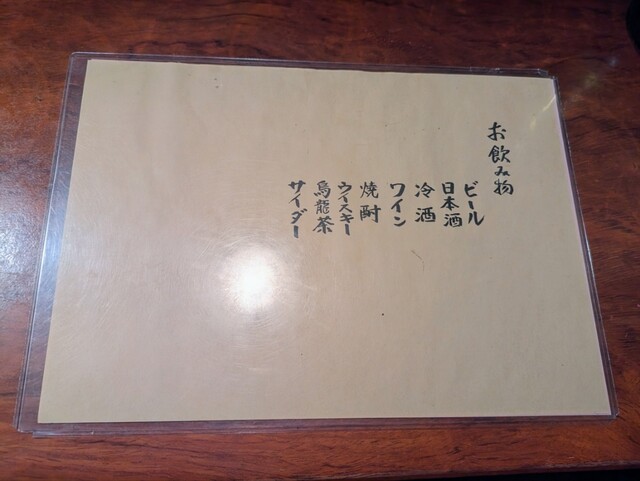 お飲み物
ビール
日本酒
冷酒
ワイン
焼酎
ウイスキー
烏龍茶
サイダー